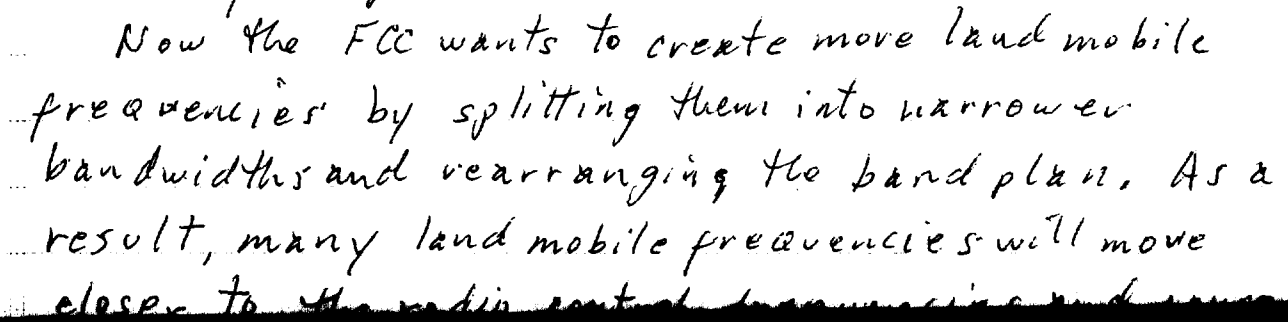 Now the FCC wants to create more land mobile
frequencies by splitting them into narrower
bandwidths and rearranging the band plan. As a
result, many land mobile frequencies will move
closer to the radio control frequencies and